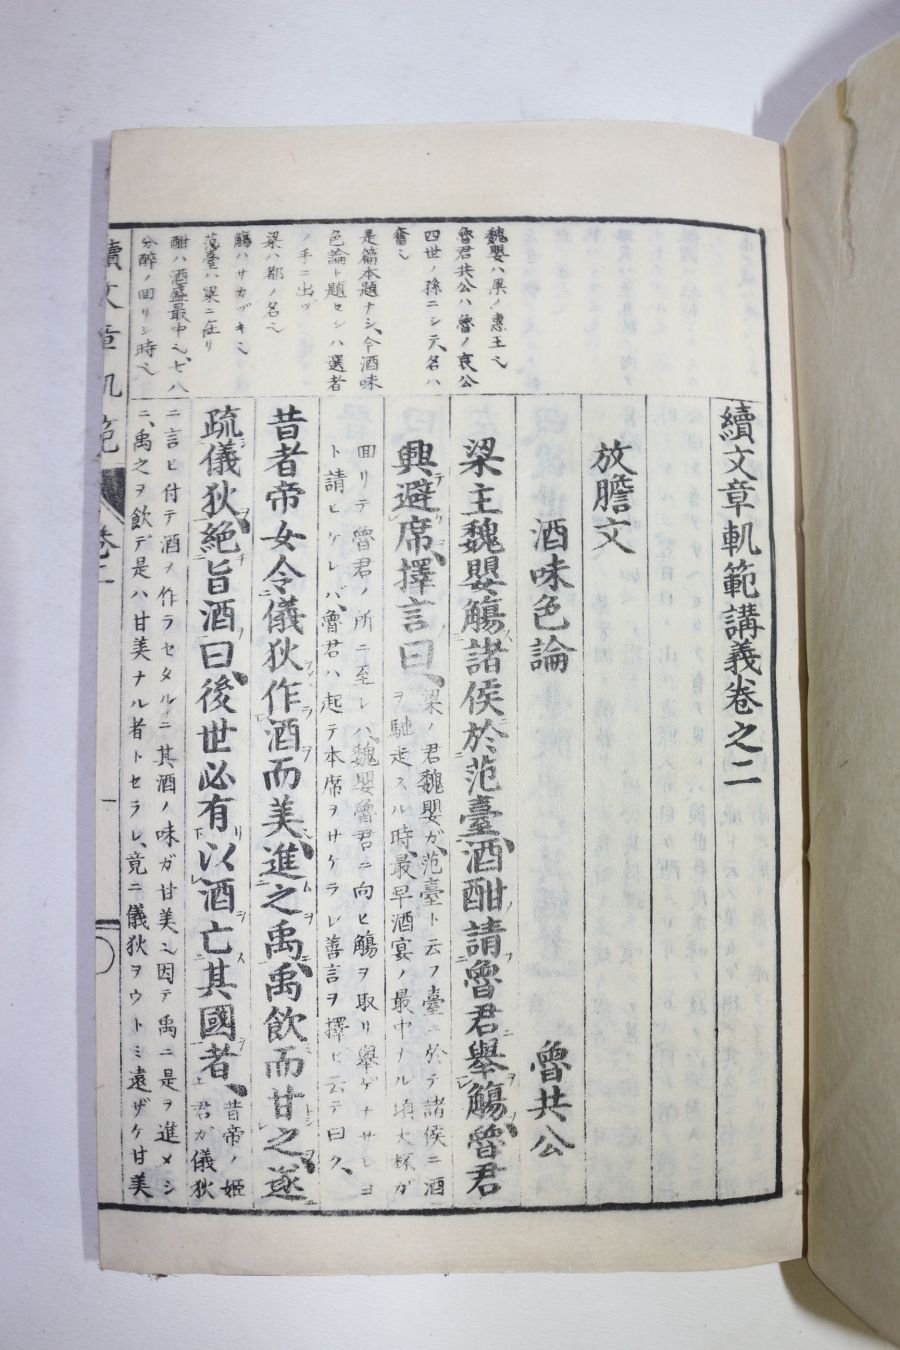 續文章軌範講義卷之二
放膽文
酒味色論 魯共公
梁主魏嬰觴諸侯於范臺酒酣請魯君舉觴魯君
興避席擇言曰、
梁ノ君魏嬰ガ、范臺ト云フ臺ニ於テ諸侯ニ酒
ヲ馳走スル時、最早酒宴ノ最中ナル頃大杯ガ
回リテ魯君ノ所ニ至レバ、魏嬰魯君ニ向ヒ觴ヲ取リ舉ゲナサレヨ
ト請ヒケレバ、魯君ハ起テ本席ヲサケラレ善言ヲ擇ビ云テ曰ク、
昔者帝女令儀狄作酒而美、進之禹、禹飲而甘之、遂
疏儀狄、絕旨酒曰、後世必有以酒亡其國者、
昔帝ノ姬
君ガ儀狄
ニ言ヒ付テ酒ヲ作ラセタルニ其酒ノ味ガ甘美シ因テ禹ニ是ヲ進メシ
ニ、禹之ヲ飲デ是ハ甘美ナル者トセラレ、竟ニ儀狄ヲウトミ遠ザケ甘美
魏嬰ハ果ノ惠王ヘ
魯君共公ハ魯ノ哀公
四世ノ孫ニシテ、名ハ
奮ヘ
是篇本題ナシ、今酒味
色論ト題セシハ選者
ノ手ニ出ヅ
梁ハ都ノ名ヘ
觴ハサカヅキヘ
范臺ハ梁ニ在リ
酣ハ酒盛最中ヘ、七八
分醉ノ回リシ時ヘ
續文章軌範 卷二
一